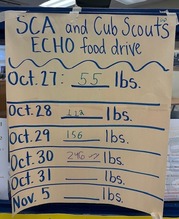 SCA and Cub Scouts
ECHO food drive
Oct. 27: 55 lbs.
Oct. 28 lbs.
Oct. 29 156 lbs.
Oct. 30 lbs.
Oct. 31 lbs.
Nov. 5 lbs.